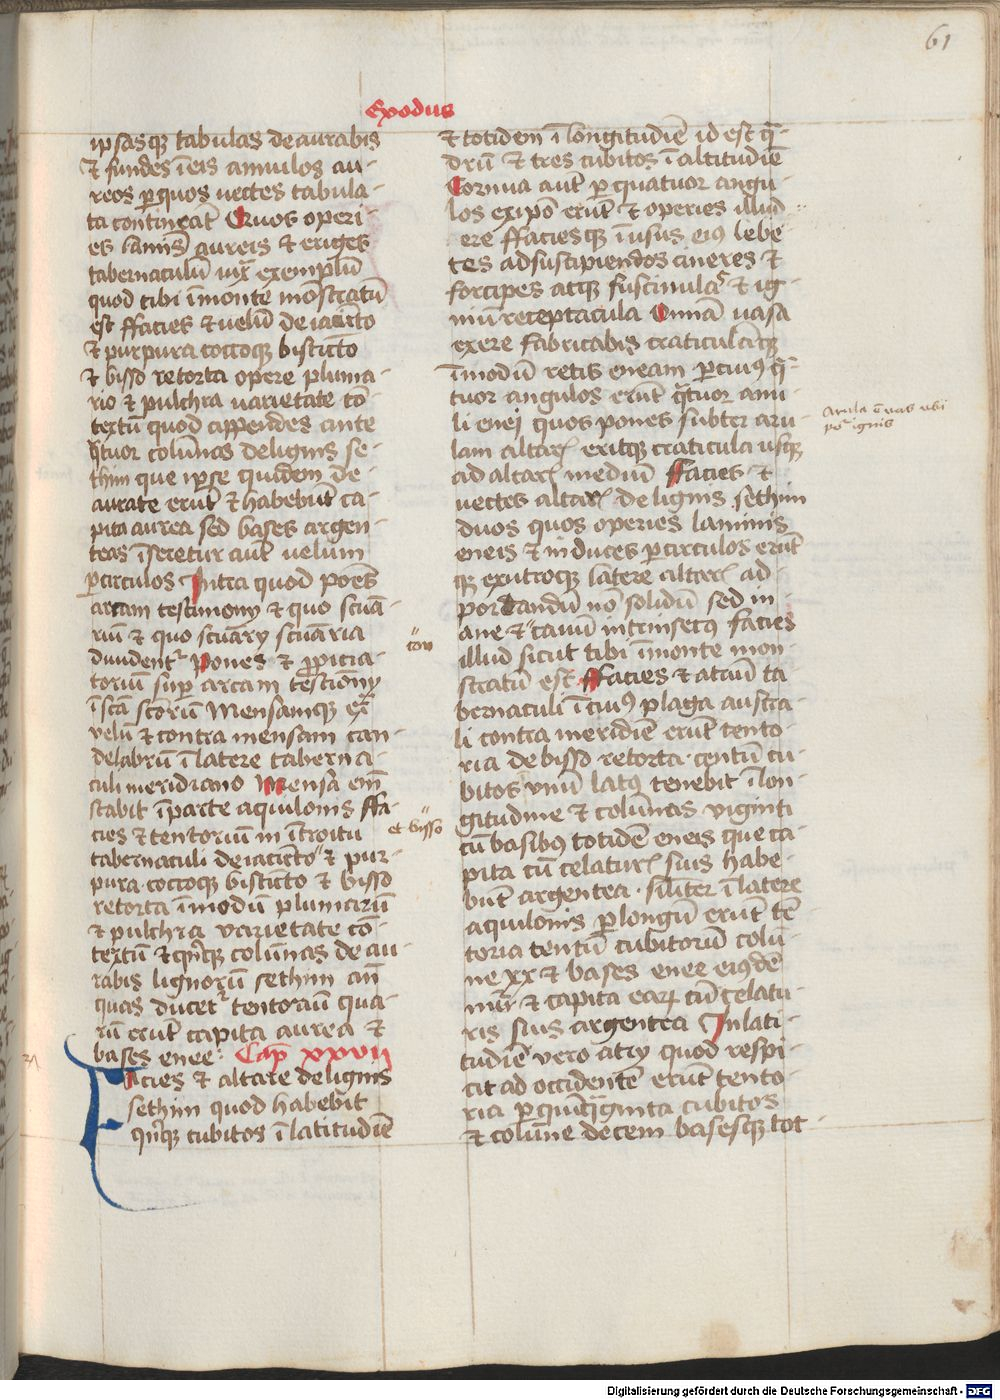 61
Exodus
ipsasq tabulas deaurabis
et fundes ī eis annulos au-
reos ꝑ quos uectes tabula-
ta contineāt Quos operi-
es lāmīs aureis et eriges
tabernaculū iuxͣ exemplū
quod tibi ī monte mōstratū
est ffacies et uelū de iacīcto
et purpura coccoqꝫ bistīcto
et bisso retorta opere pluma-
rio et pulchra uarietate cō-
textū quod appendes ante
qͣtuor colūnas de lignis se-
thim que ipse quidem de-
aurate erūt et habebūt ca-
pita aurea sed bases argen-
teas īseretur autē uelum
ꝑ circulos Intra quod pōes
arcam testimony et quo scuā-
riū et quo scuāry scuāria
diuidentr Pones et ꝓpicia-
toriū suꝑ arcam testiōny
ī scā scōrū Mensamqꝫ exͣ
velū et contra mensam can-
delabrū ī latere taberna-
culi meridiano Mensa em̄
stabit ī parte aquilonis ffa-
cies et tentoriū in ītroitu
tabernaculi de iacīcto et pur-
pura coccoqꝫ bistīcto et bisso
retorta ī modū plumarū
et pulchra varietate cō-
textū et qnqꝫ colūnas de au-
rabis lignorū sethim an̄
quas ducetr tentoriū qua-
rū erūt capita aurea et
bases enee: Cap xxvii
Facies et altare de lignis
sethim quod habebit
qnqꝫ cubitos ī latitudīe
et bisso
et totidem ī longitudīe id est qͣ-
drū et tres cubitos ī altitudīe
Cornua autē ꝑ quatuor angu-
los ex ipō erūt et operies illud
ere ffaciesqꝫ ī usus eiꝰ lebe-
tes ad suscipiendos cineres et
forcipes atqꝫ fuscinulas et ig-
niū receptacula Omnia uasa
ex ere fabricabis craticulāqꝫ
ī modū retis eneam ꝑ cuiꝰ qͣ-
tuor angulos erūt qͣtuor anu-
li enej quos pones subter aru-
lam altarꝭ eritqꝫ craticula usqꝫ
ad altarꝭ mediū ffacies et
uectes altarꝭ de lignis sethim
duos quos operies laminis
eneis et induces ꝑ circulos erūt
qꝫ ex utroqꝫ latere altarꝭ ad
portandū nō solidū sed in-
ane et cauū intrinsecꝰ facies
illud sicut tibi ī monte mon-
stratū est ffacies et atriū ta-
bernaculi ī cuiꝰ plaga austra-
li contra meridiē erūt tento-
ria de bisso retorta centū cu-
bitos vnū latꝰ tenebit ī lon-
gitudine et colūnas viginti
cū basibꝰ totidē eneis que ca-
pita cū celaturꝭ suis habe-
būt argentea silīter ī latere
aquilonis ꝑ longū erūt tē-
toria centū cubitorū colū-
ne xx et bases enee eiꝰdē
nūi et capita earꝝ cū celatu-
ris suis argentea In lati-
tudīe vero atry quod respi-
cit ad occidentē erūt tento-
ria ꝑ quīqͣginta cubitos
et colūne decem basesqꝫ tot-
Arula ē vas ubi
ignis
Digitalisierung gefördert durch die Deutsche Forschungsgemeinschaft - DFG